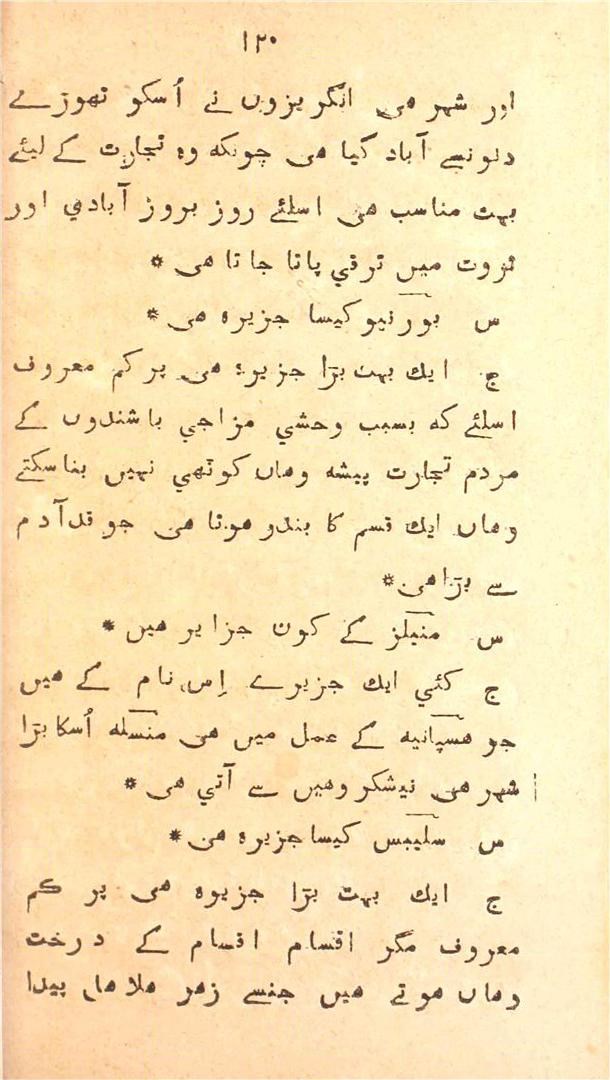 ۱۲۰
اور شهر هی انگریزوں نے اُسکو تهوڑے
دنونسے آباد کیا هی چونکه وه تجارت کے لیئے
بهت مناسب هی اسلئے روز بروز آبادي اور
ثروت میں ترقي پاتا جاتا هی *
س بورنیو کیسا جزیره هی *
ج ایك بهت بڑا جزیره هی پر کم معروف
اسلئے که بسبب وحشي مزاجي باشندوں کے
مردم تجارت پیشه وهاں کوٹهي نهیں بناسکتے
وهاں ایك قسم کا بندر هوتا هی جو قدآدم
سے بڑا هی *
س منیلز کے کون جزایر هیں *
ج کئي ایك جزیرے اِس نام کے هیں
جو هسپانیه کے عمل میں هی منسله اُسکا بڑا
شهر هی نیشکر وهیں سے آتي هی *
س سلیبس کیسا جزیره هی *
ج ایك بهت بڑا جزیره هی پر کم
معروف مگر اقسام اقسام کے درخت
وهاں هوتے هیں جنسے زهر هلاهل پیدا